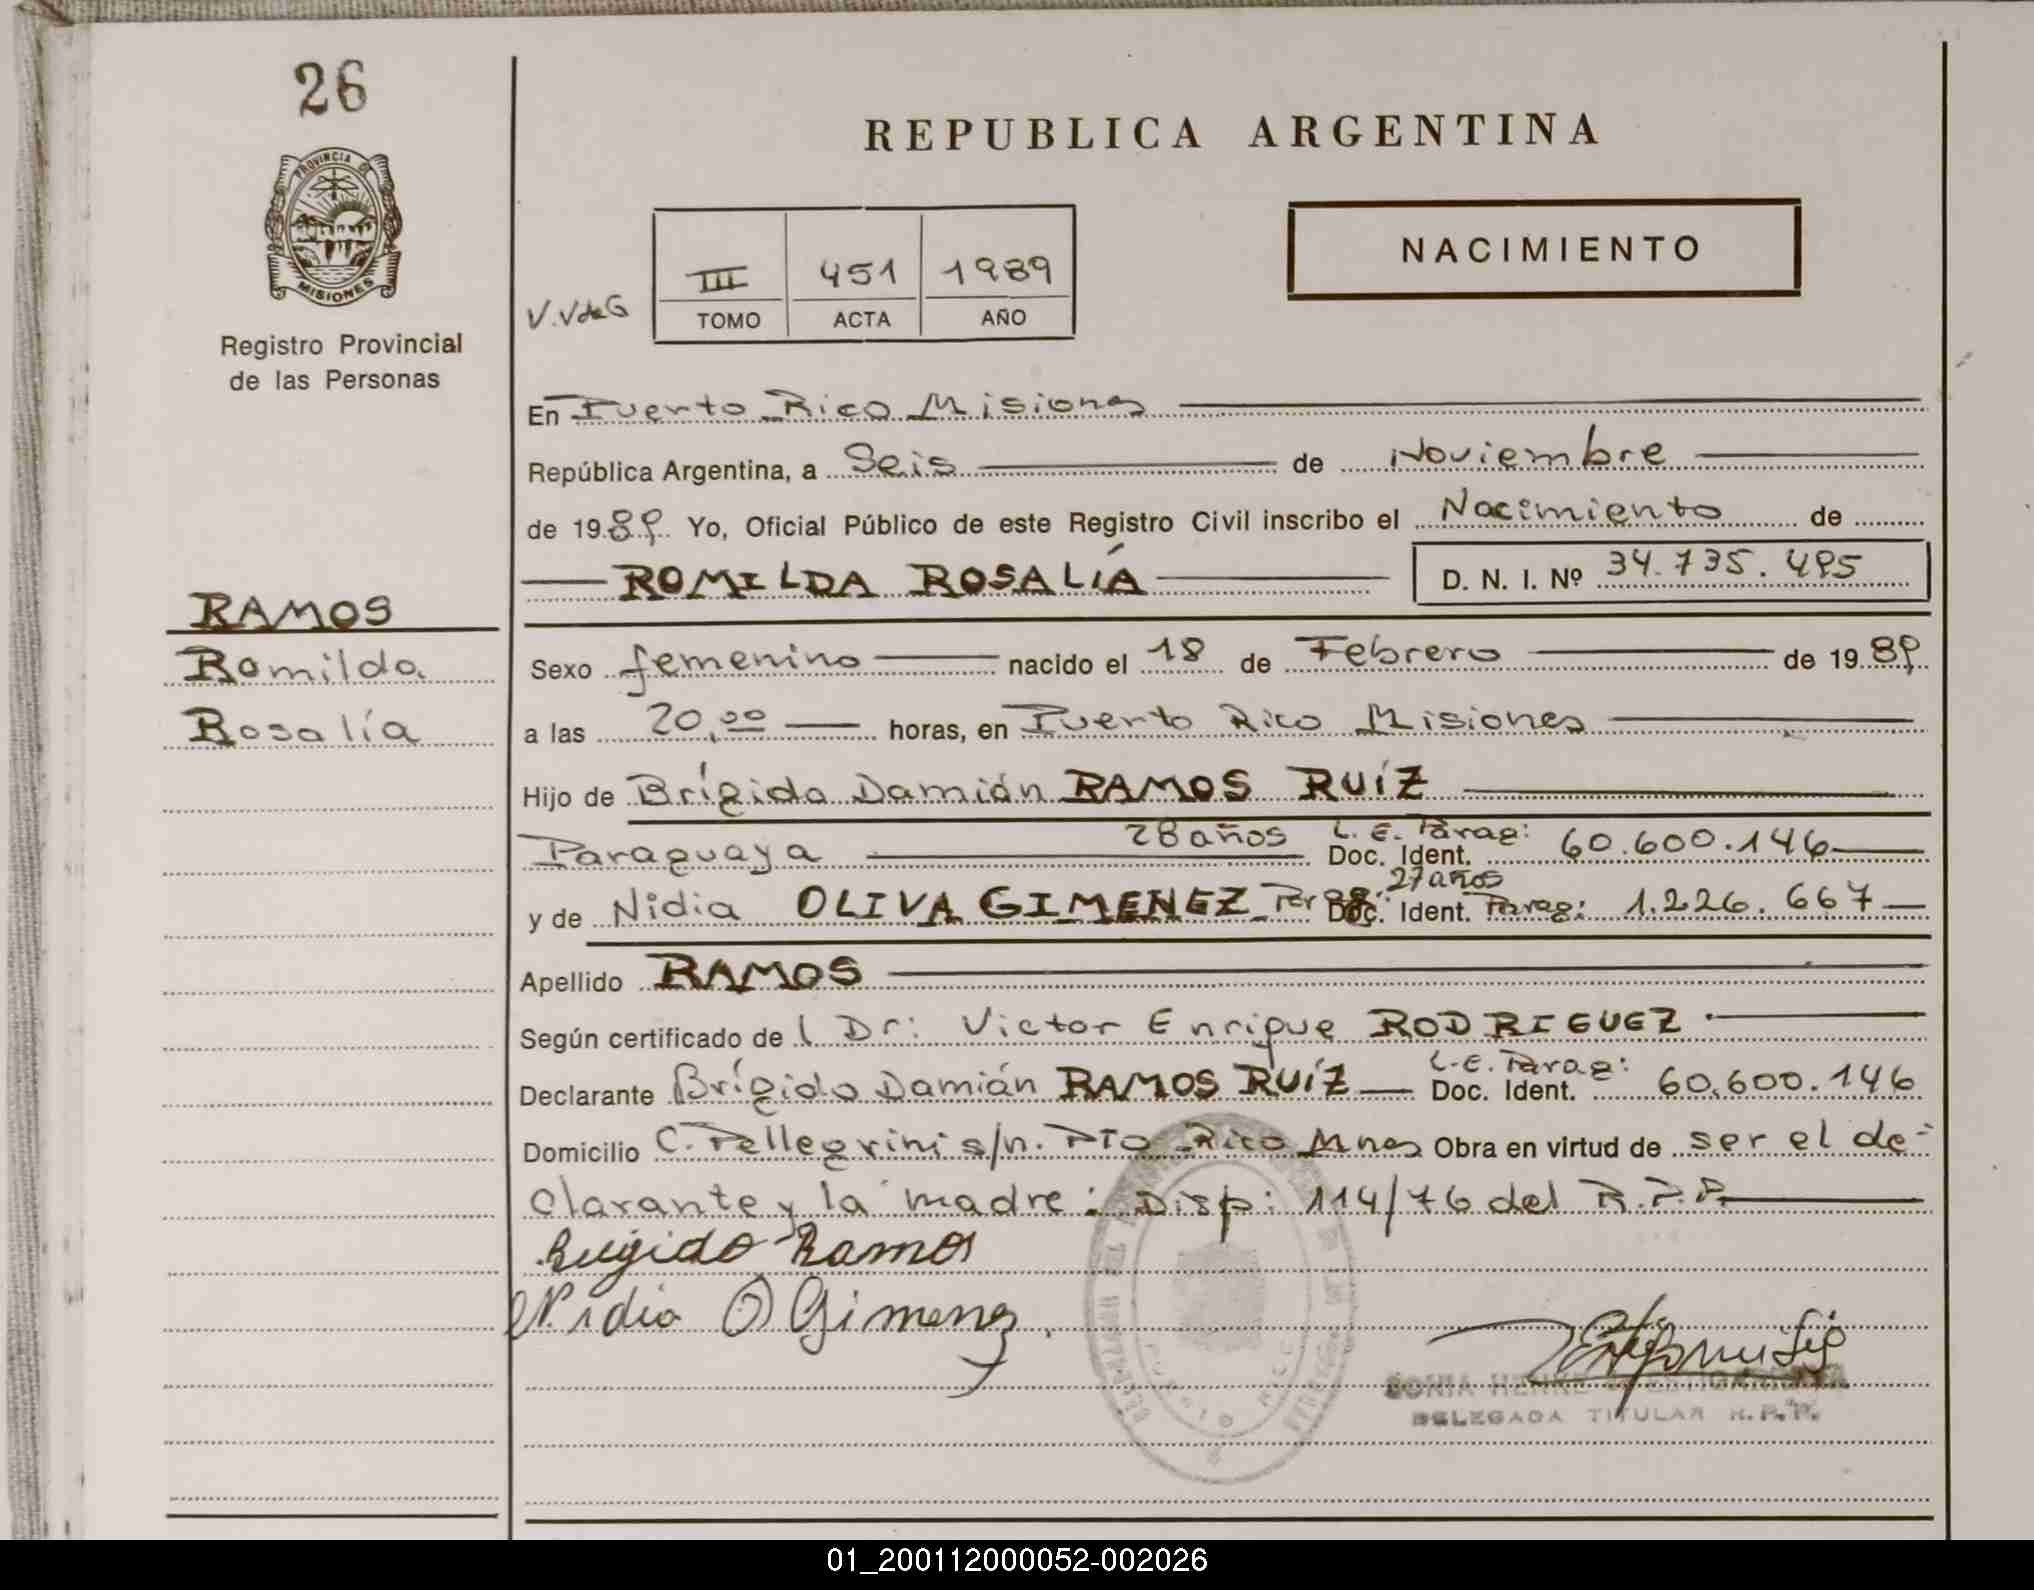 26
PROVINCIA DE
MISIONES
Registro Provincial
de las Personas
REPUBLICA ARGENTINA
NACIMIENTO
V.VdeG
III 451 1989
TOMO ACTA AÑO
En Puerto Rico Misiones
República Argentina, a Seis de Noviembre
de 1989 Yo, Oficial Público de este Registro Civil inscribo el Nacimiento de
ROMILDA ROSALÍA D. N. I. Nº 34.735.495
RAMOS
Romilda
Rosalía
Sexo femenino nacido el 18 de Febrero de 1989
a las 20,00 horas, en Puerto Rico Misiones
Hijo de Brígido Damián RAMOS RUÍZ
Paraguaya 28 años L.E. Parag: Doc. Ident. 60.600.146
y de Nidia OLIVA GIMENEZ Parag. 27 años Doc. Ident. Parag: 1.226.667
Apellido RAMOS
Según certificado de l Dr: Victor Enrique RODRIGUEZ
Declarante Brígido Damián RAMOS RUÍZ L.E. Parag: Doc. Ident. 60.600.146
Domicilio C. Pellegrini s/n. Pto Rico Mnes Obra en virtud de ser el de-
clarante y la madre: Disp: 114/76 del R.P.P.
Brigido Ramos
Nidia O Gimenez
SONIA
DELEGADA TITULAR R.P.P.
PUERTO RICO
01_200112000052-002026